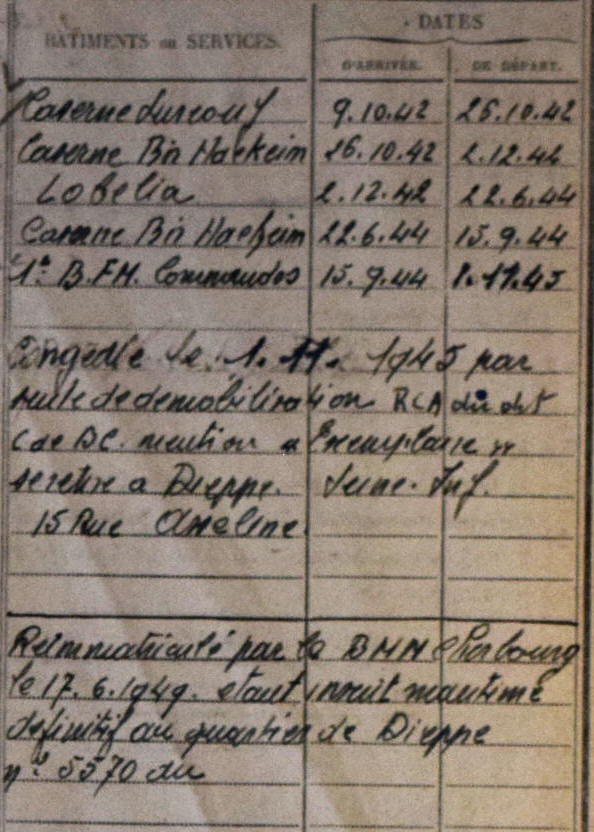 DATES
BATIMENTS ou SERVICES.
D'ARRIVÉE. DE DÉPART.
Caserne Surcouf 9.10.42 26.10.42
Caserne Bir Hackeim 26.10.42 2.12.42
Lobelia 2.12.42 22.6.44
Caserne Bir Hackeim 22.6.44 15.9.44
1er B.F.M. Commandos 15.9.44 1.11.45
Congédié le 1.11.1945 par
suite de demobilisation RCA du dit
C de BC. mention "Exemplaire"
se retire a Dieppe. Seine. Inf.
15 Rue Ameline
Reimmatriculé par le BMM Cherbourg
le 17.6.1949. etant inscrit maritime
definitif au quartier de Dieppe
n° 5570 du